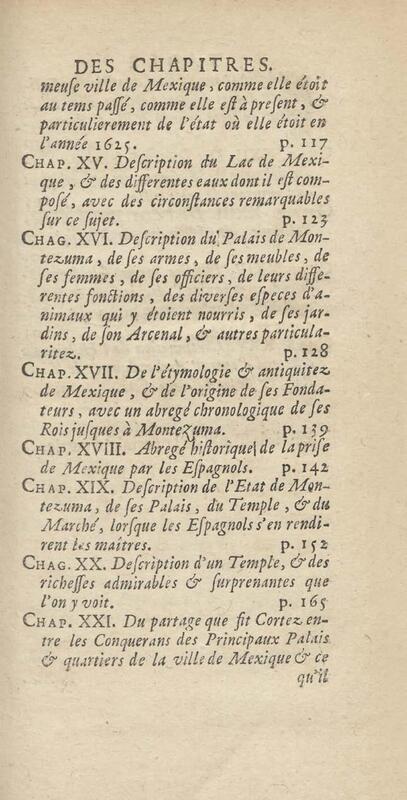 DES CHAPITRES.
meuse ville de Mexique, comme elle étoit
au tems passé, comme elle est à present, &
particulierement de l'état où elle étoit en
l'année 1625. p. 117
CHAP. XV. Description du Lac de Mexi-
que, & des differentes eaux dont il est com-
posé, avec des circonstances remarquables
sur ce sujet. p. 123
CHAG. XVI. Description du Palais de Mon-
tezuma, de ses armes, de ses meubles, de
ses femmes, de ses officiers, de leurs diffe-
rentes fonctions, des diverses especes d'a-
nimaux qui y étoient nourris, de ses jar-
dins, de son Arcenal, & autres particula-
ritez. p. 128
CHAP. XVII. De l'étymologie & antiquitez
de Mexique, & de l'origine de ses Fonda-
teurs, avec un abregé chronologique de ses
Rois jusques à Montezuma. p. 139
CHAP. XVIII. Abregé historique de la prise
de Mexique par les Espagnols. p. 142
CHAP. XIX. Description de l'Etat de Mon-
tezuma, de ses Palais, du Temple, & du
Marché, lorsque les Espagnols s'en rendi-
rent les maîtres. p. 152
CHAG. XX. Description d'un Temple, & des
richesses admirables & surprenantes que
l'on y voit. p. 165
CHAP. XXI. Du partage que fit Cortez en-
tre les Conquerans des Principaux Palais
& quartiers de la ville de Mexique & ce
qu'il